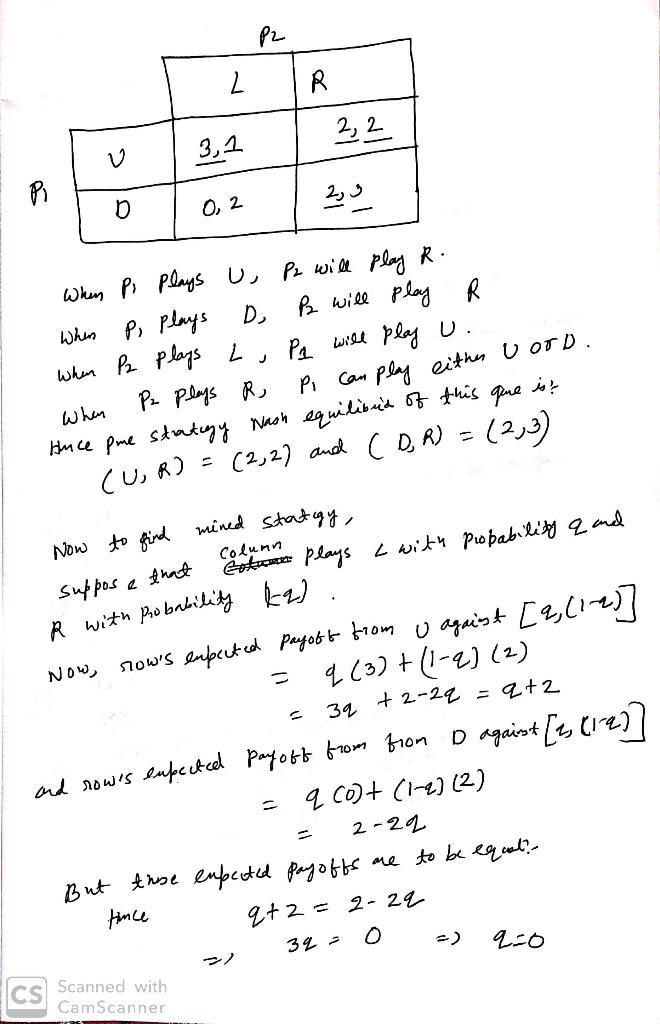 P2
L R
U 3,1 2,2
P1
D 0,2 2,3
When P1 plays U, P2 will play R.
When P1 plays D, P2 will play R
When P2 plays L, P1 will play U.
When P2 plays R, P1 can play either U or D.
Hence pure strategy Nash equilibria of this game is:
(U, R) = (2,2) and (D, R) = (2,3)
Now to find mixed strategy,
suppose that column plays L with probability q and
R with probability (1-q).
Now, row's expected payoff from U against [q,(1-q)]
= q(3) + (1-q)(2)
= 3q + 2-2q = q+2
and row's expected payoff from from D against [q,(1-q)]
= q(0) + (1-q)(2)
= 2-2q
But these expected payoffs are to be equal:-
Hence q+2 = 2-2q
=> 3q = 0 => q=0
CS Scanned with
CamScanner